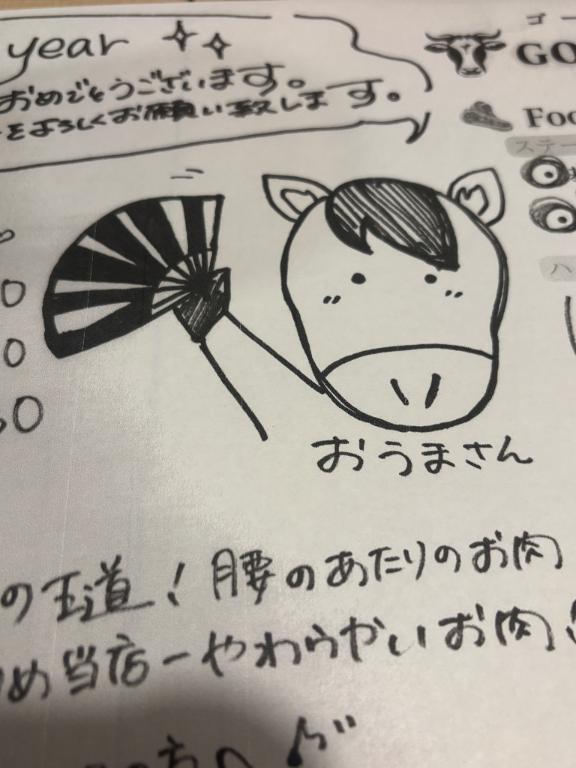 year
おめでとうございます。
をよろしくお願い致します。
ゴー
GO
Foo
ステー
ハ
0
0
50
おうまさん
の王道！腰のあたりのお肉
め当店一やわらかいお肉